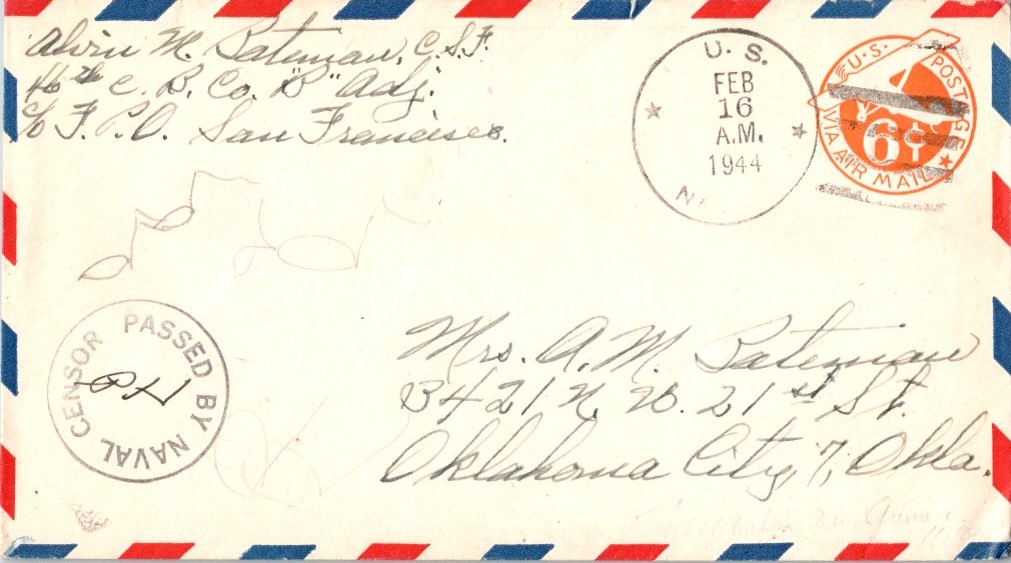 Alvin M. Bateman, C.S.F.
46th C. B. Co. "B" Adj.
c/o F. P.O. San Francisco.
U. S.
FEB
16
A.M.
1944
U.S. POSTAGE
6¢
VIA AIR MAIL
PASSED BY NAVAL CENSOR
Mrs. A. M. Bateman
3421 N. W. 21st St.
Oklahoma City, 7, Okla.